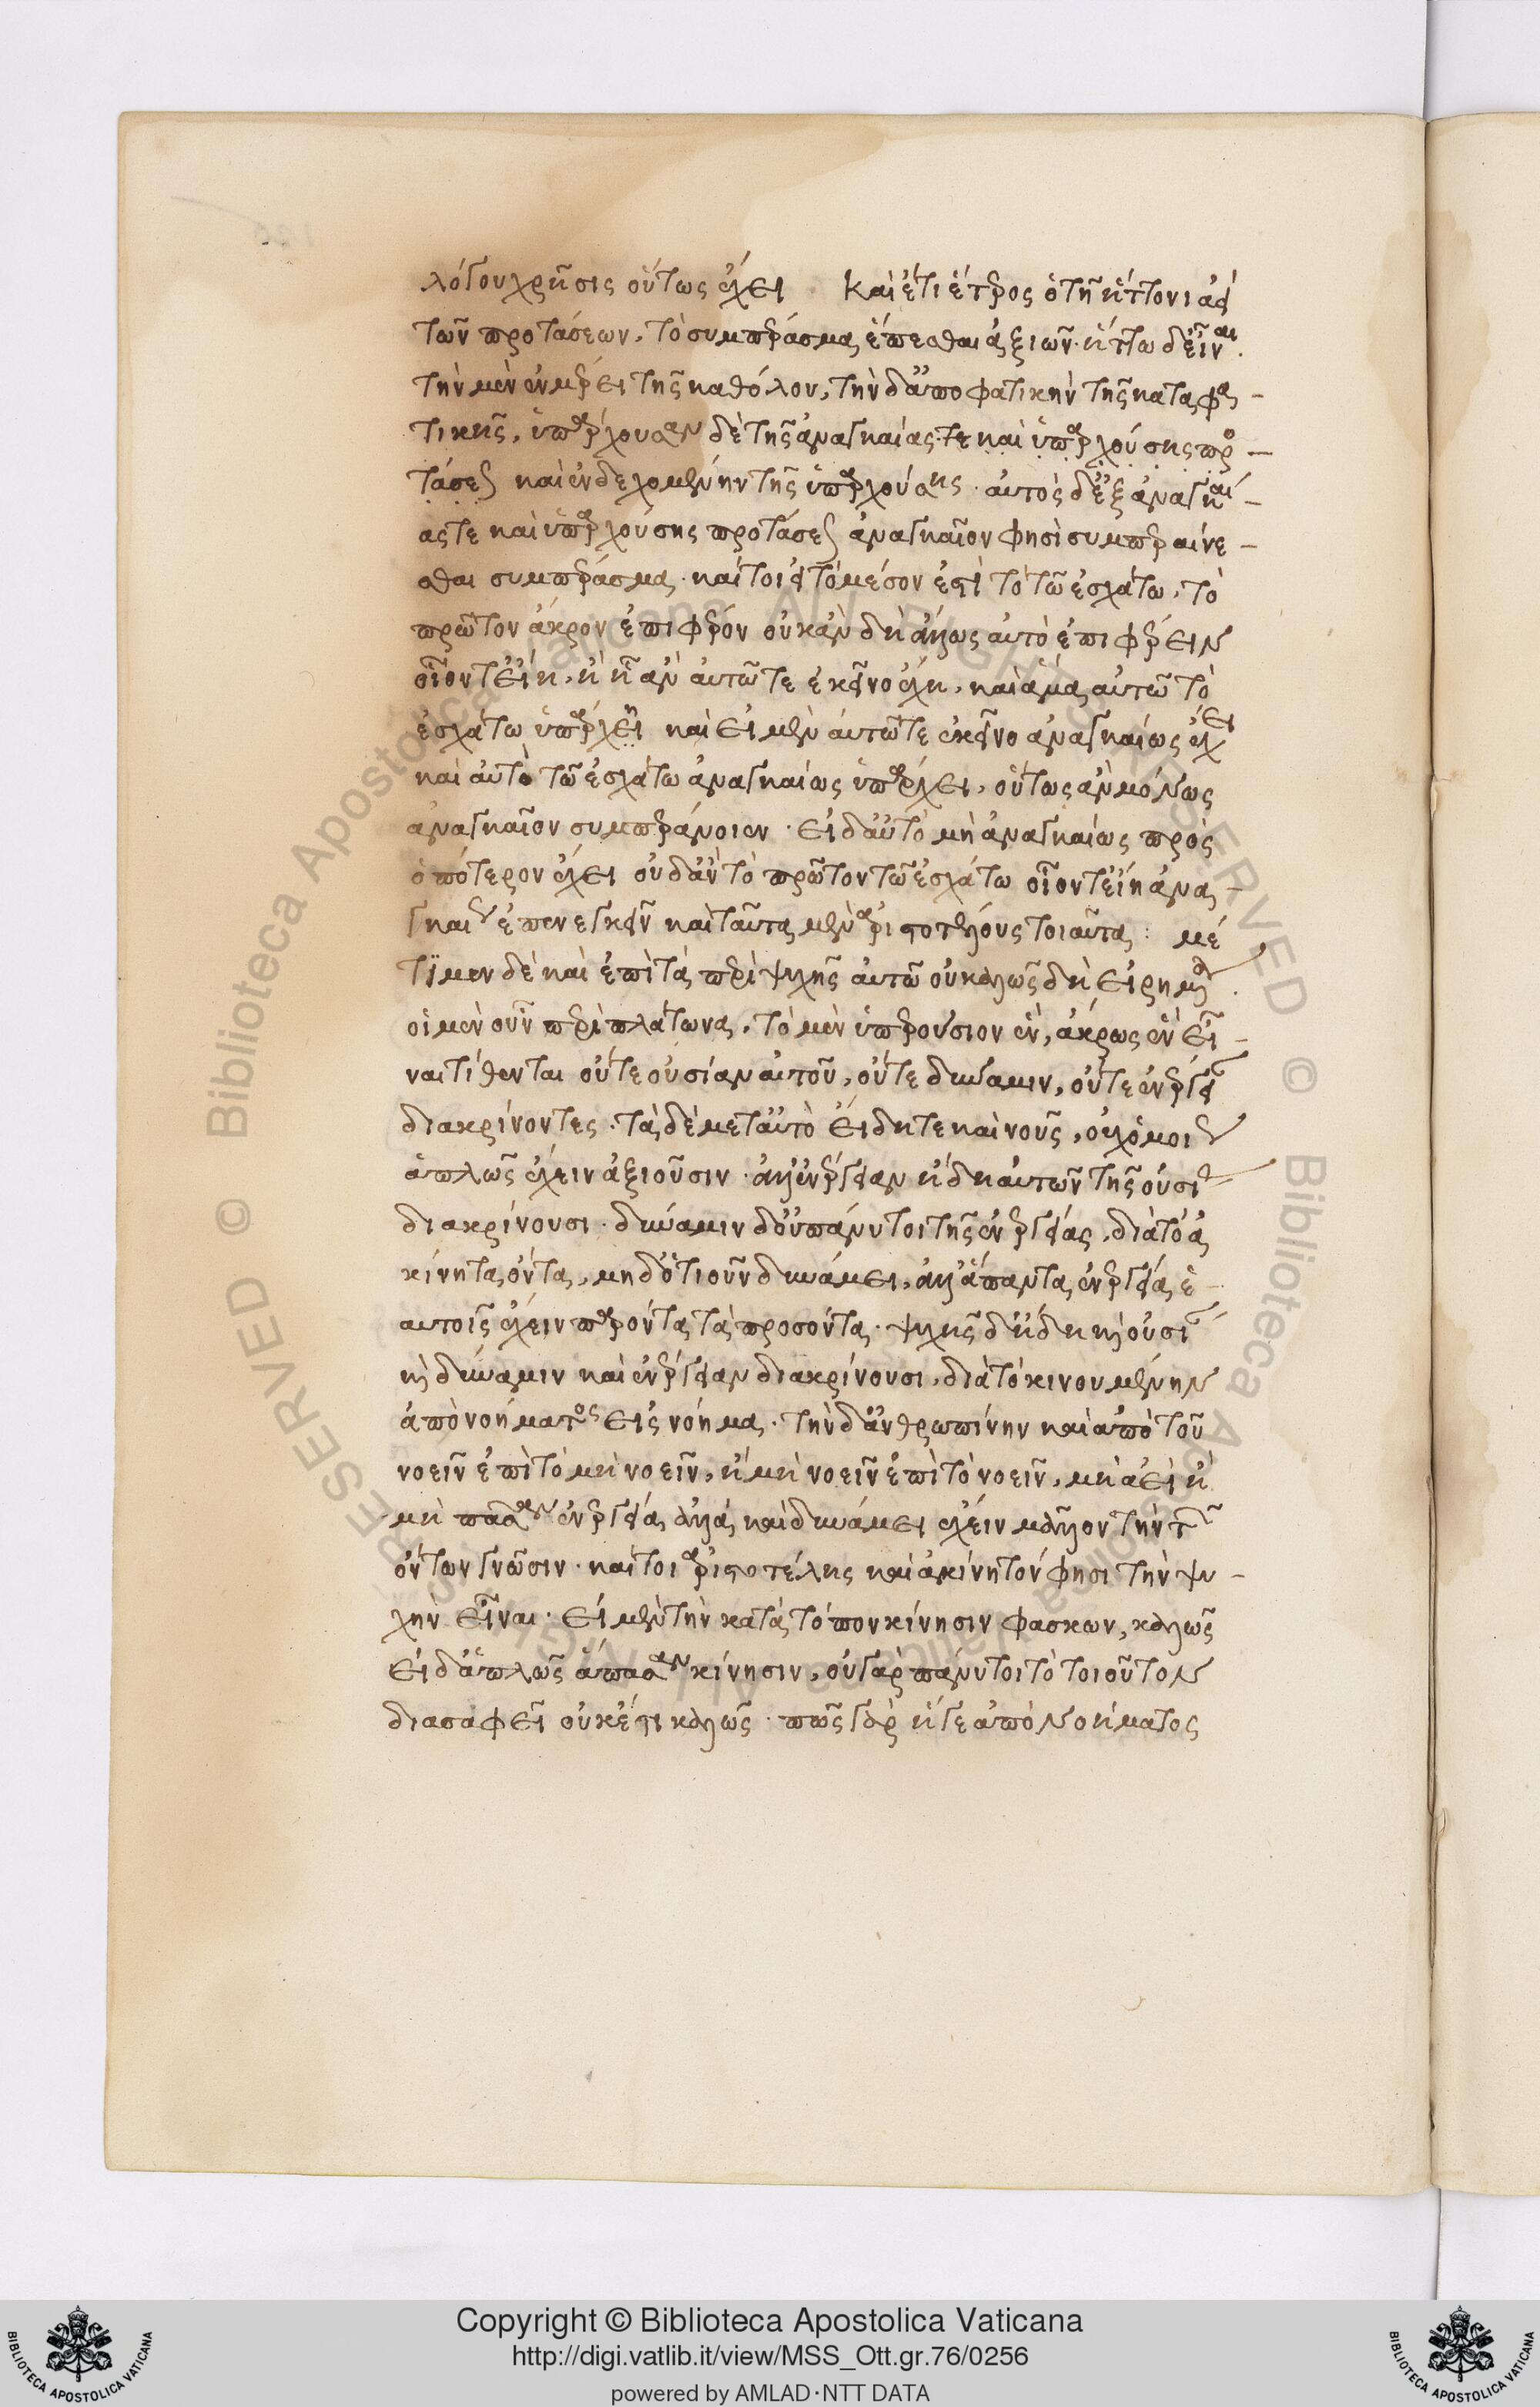 λόγου χρῆσις οὕτως ἔχει. Καὶ ἔτι ἕτερος ὁ τῇ ἥττονι ἀεὶ
τῶν προτάσεων, τὸ συμπέρασμα ἕπεσθαι ἀξιῶν. ἥττω δ' εἶναι
τὴν μὲν ἐν μέρει τῆς καθόλου, τὴν δ' ἀποφατικὴν τῆς καταφα-
τικῆς, ὑπάρχουσαν δὲ τῆς ἀναγκαίας. τε καὶ ὑπαρχούσης προ-
τάσεως καὶ ἐνδεχομένην τῆς ὑπαρχούσης. αὐτὸς δ' ἐξ ἀναγκαί-
ας τε καὶ ὑπαρχούσης προτάσεως ἀναγκαῖον φησὶ συμπεραίνε-
σθαι συμπέρασμα. καίτοι εἰ τὸ μέσον ἐστὶ τὸ τῷ ἐσχάτῳ, τὸ
πρῶτον ἄκρον ἐπιφέρον οὐκ ἂν δὴ ἄλλως αὐτὸ ἐπιφέρειν
οἷόν τ' εἴη, ἢ ᾗ ἂν αὐτῷ τε ἐκεῖνο ἔχῃ, καὶ ἅμα αὐτῷ τὸ
ἐσχάτῳ ὑπάρχει καὶ εἰ μὲν αὐτῷ τε ἐκεῖνο ἀναγκαίως ἔχει
καὶ αὐτὸ τῷ ἐσχάτῳ ἀναγκαίως ὑπάρχει, οὕτως ἂν μόνως
ἀναγκαῖον συμπεράνοιεν. εἰ δ' αὐτὸ μὴ ἀναγκαίως πρὸς
ὁπότερον ἔχει οὐδ' ἂν τὸ πρῶτον τῷ ἐσχάτῳ οἷόν τ' εἴη ἀνα-
γκαίως ἐπενεγκεῖν καὶ ταῦτα μὲν ἀριστοτέλους τοιαῦτα: μέ
τιμεν δὲ καὶ ἐπὶ τὰ περὶ ψυχῆς αὐτῷ οὐ καλῶς δὴ εἰρημένα.
οἱ μὲν οὖν περὶ πλάτωνα, τὸ μὲν ὑπερούσιον ἓν, ἄκρως ἓν εἶ-
ναι τίθενται οὔτε οὐσίαν αὐτοῦ, οὔτε δύναμιν, οὔτε ἐνέργειαν
διακρίνοντες. τὰ δὲ μετ' αὐτὸ εἴδη τε καὶ νοῦς, οὐχ ὁμοίως
ἁπλῶς ἔχειν ἀξιοῦσιν. ἀλλ' ἐνέργειαν ἤδη αὐτῶν τῆς οὐσίας
διακρίνουσι. δύναμιν δ' οὐ πάνυ τοι τῆς ἐνεργείας, διὰ τὸ ἀ
κίνητα ὄντα, μηδ' ὁτιοῦν δυνάμει, ἀλλ' ἅπαντα ἐνεργείᾳ ἑ-
αυτοῖς ἔχειν παρόντα τὰ προσόντα. ψυχῆς δ' ἤδη καὶ οὐσίαν
καὶ δύναμιν καὶ ἐνέργειαν διακρίνουσι, διὰ τὸ κινουμένην
ἀπὸ νοήματος εἰς νόημα. τὴν δ' ἀνθρωπίνην καὶ ἀπὸ τοῦ
νοεῖν ἐπὶ τὸ μὴ νοεῖν, ἢ μὴ νοεῖν ἐπὶ τὸ νοεῖν, μὴ ἀεὶ ἢ
μὴ πᾶσαν ἐνεργείᾳ ἀλλὰ καὶ δυνάμει ἔχειν μᾶλλον τὴν τῶν
ὄντων γνῶσιν. καίτοι ἀριστοτέλης καὶ ἀκίνητόν φησι τὴν ψυ-
χὴν εἶναι. εἰ μὲν τὴν κατὰ τόπον κίνησιν φάσκων, καλῶς
εἰ δ' ἁπλῶς ἅπασαν κίνησιν, οὐ γὰρ πάνυ τοι τὸ τοιοῦτον
διασαφεῖ οὐκέτι καλῶς. πῶς γὰρ ἥ γε ἀπὸ νοήματος
Copyright © Biblioteca Apostolica Vaticana
http://digi.vatlib.it/view/MSS_Ott.gr.76/0256
powered by AMLAD·NTT DATA